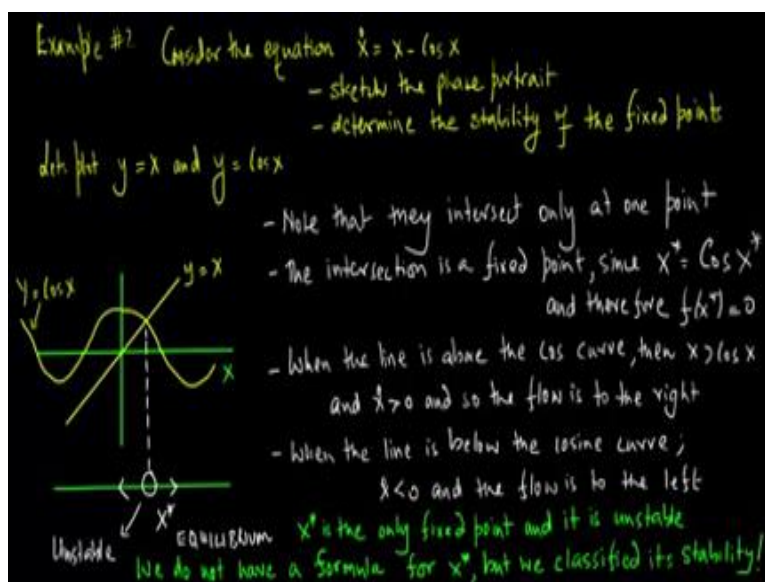 Example #2 Consider the equation ẋ = x - Cos x
- sketch the phase portrait
- determine the stability of the fixed point
lets plot y = x and y = Cos x
- Note that they intersect only at one point
- The intersection is a fixed point, since x* = Cos x*
and therefore f(x*) = 0
Y = Cos x
y = x
- When the line is above the cos curve, then x > Cos x
and ẋ > 0 and so the flow is to the right
X
- When the line is below the cosine curve;
ẋ < 0 and the flow is to the left
X*
Unstable
EQUILIBRIUM
x* is the only fixed point and it is unstable
We do not have a formula for x*, but we classified its stability!